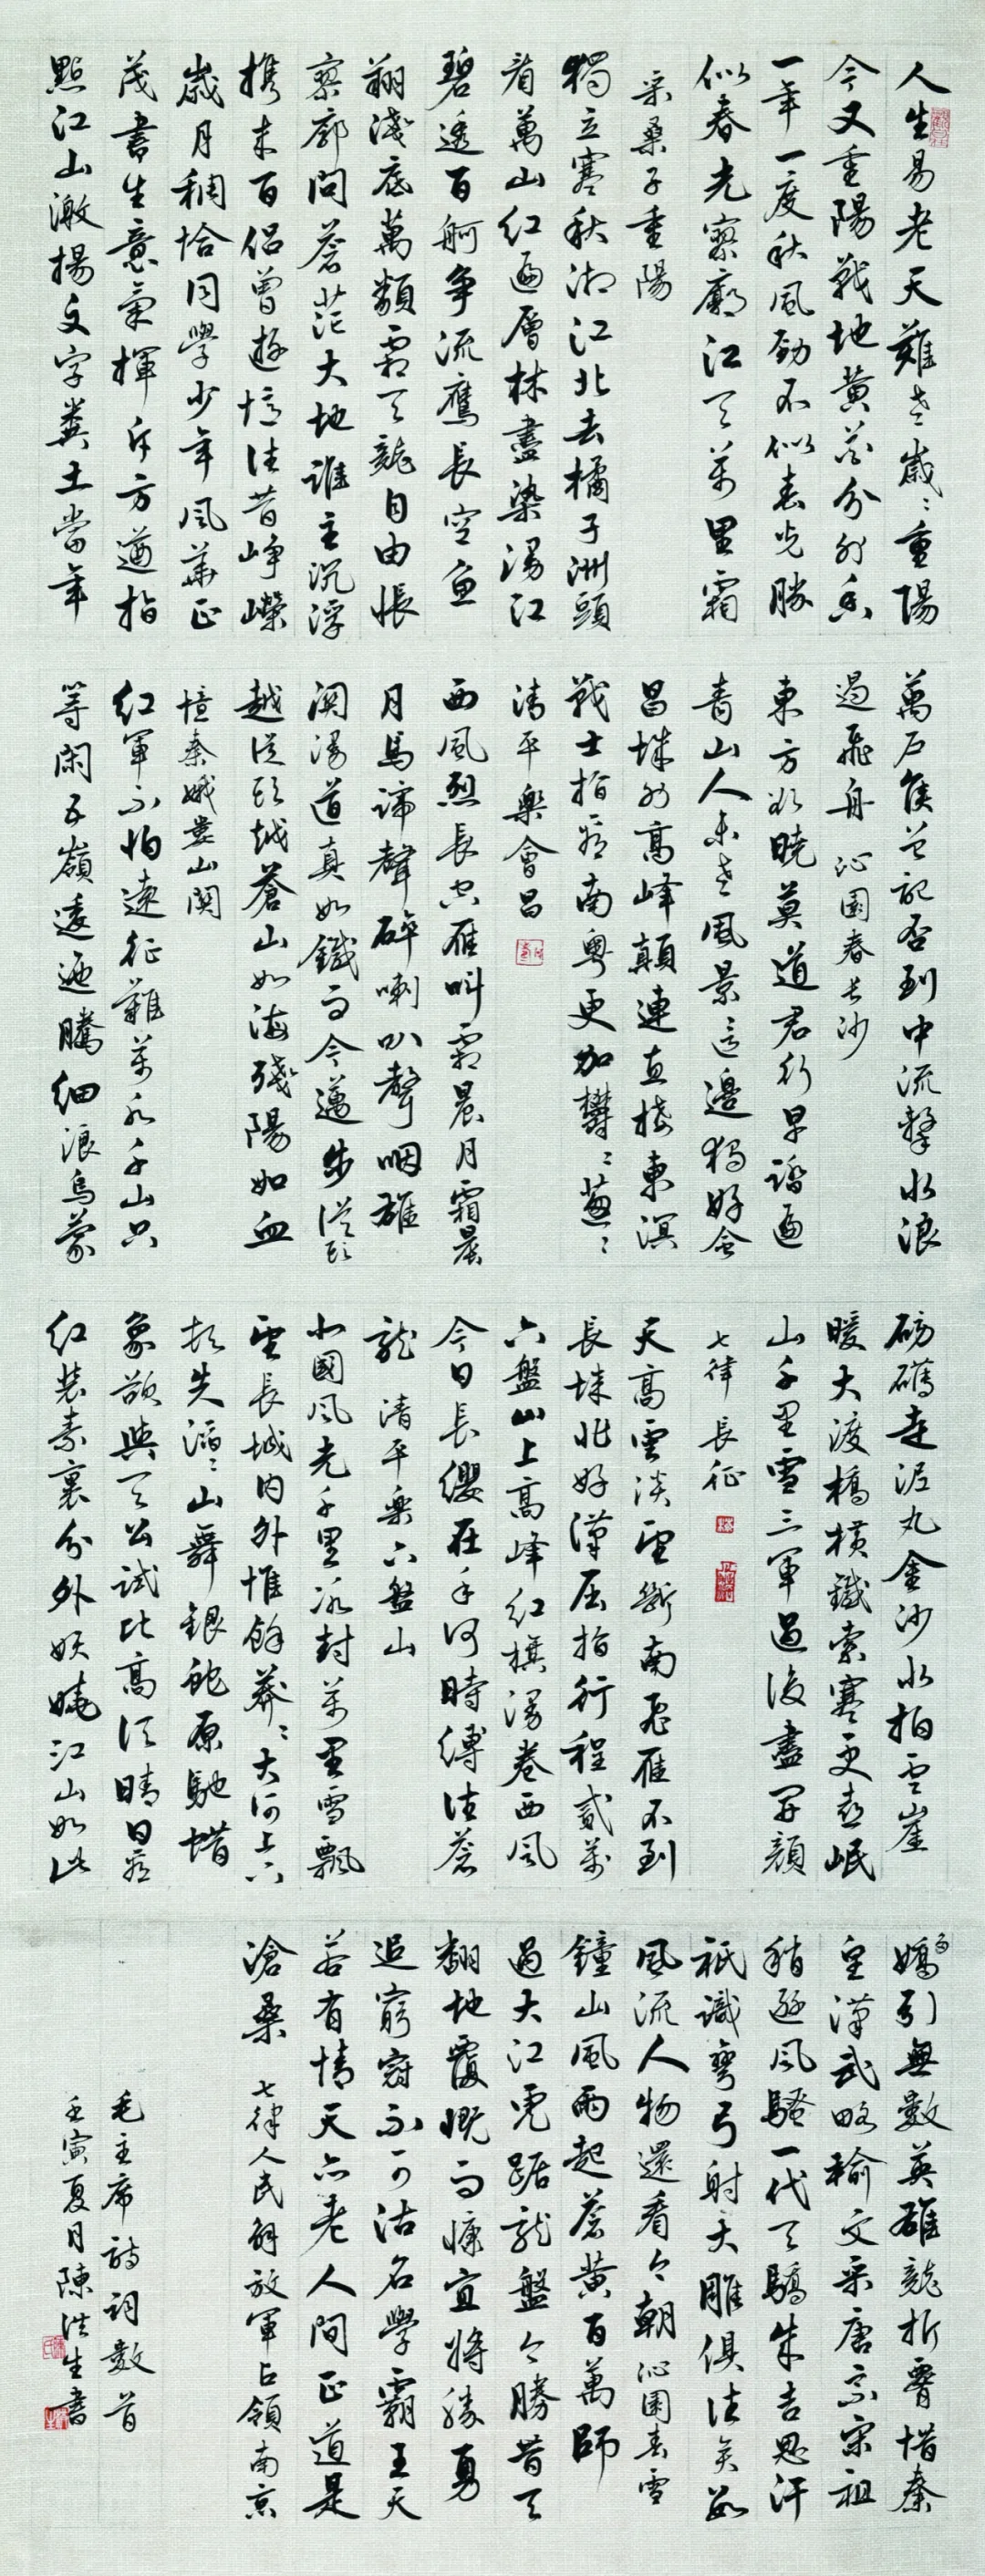 人生易老天難老歲々重陽
今又重陽戰地黃花分外香
一年一度秋風勁不似春光勝
似春光寥廓江天萬里霜
采桑子重陽
獨立寒秋湘江北去橘子洲頭
看萬山紅遍層林盡染漫江
碧透百舸爭流鷹長空魚
翔淺底萬類霜天競自由悵
寥廓問蒼茫大地誰主沉浮
攜來百侶曾遊憶往昔崢嶸
歲月稠恰同學少年風華正
茂書生意氣揮斥方遒指
點江山激揚文字糞土當年
萬戶侯曾記否到中流擊水浪
遏飛舟 沁園春長沙
東方欲曉莫道君行早踏遍
青山人未老風景這邊獨好會
昌城外高峰顛連直接東溟
戰士指看南粵更加鬱々蔥々
清平樂會昌
西風烈長空雁叫霜晨月霜晨
月馬蹄聲碎喇叭聲咽雄
關漫道真如鐵而今邁步從頭
越從頭越蒼山如海殘陽如血
憶秦娥婁山關
紅軍不怕遠征難萬水千山只
等閑五嶺逶迤騰細浪烏蒙
磅礴走泥丸金沙水拍雲崖
暖大渡橋橫鐵索寒更喜岷
山千里雪三軍過後盡開顏
七律長征
天高雲淡望斷南飛雁不到
長城非好漢屈指行程貳萬
六盤山上高峰紅旗漫卷西風
今日長纓在手何時縛住蒼
龍 清平樂六盤山
北國風光千里冰封萬里雪飄
望長城內外惟餘莽々大河上下
頓失滔々山舞銀蛇原馳蠟
象欲與天公試比高須晴日看
紅裝素裹分外妖嬈江山如此
多嬌引無數英雄競折腰惜秦
皇漢武略輸文采唐宗宋祖
稍遜風騷一代天驕成吉思汗
祇識彎弓射大雕俱往矣數
風流人物還看今朝 沁園春雪
鐘山風雨起蒼黃百萬師
過大江虎踞龍盤今勝昔天
翻地覆慨而慷宜將勝勇
追窮寇不可沽名學霸王天
若有情天亦老人間正道是
滄桑 七律人民解放軍占領南京
毛主席詩詞數首
壬寅夏月陳洪生書